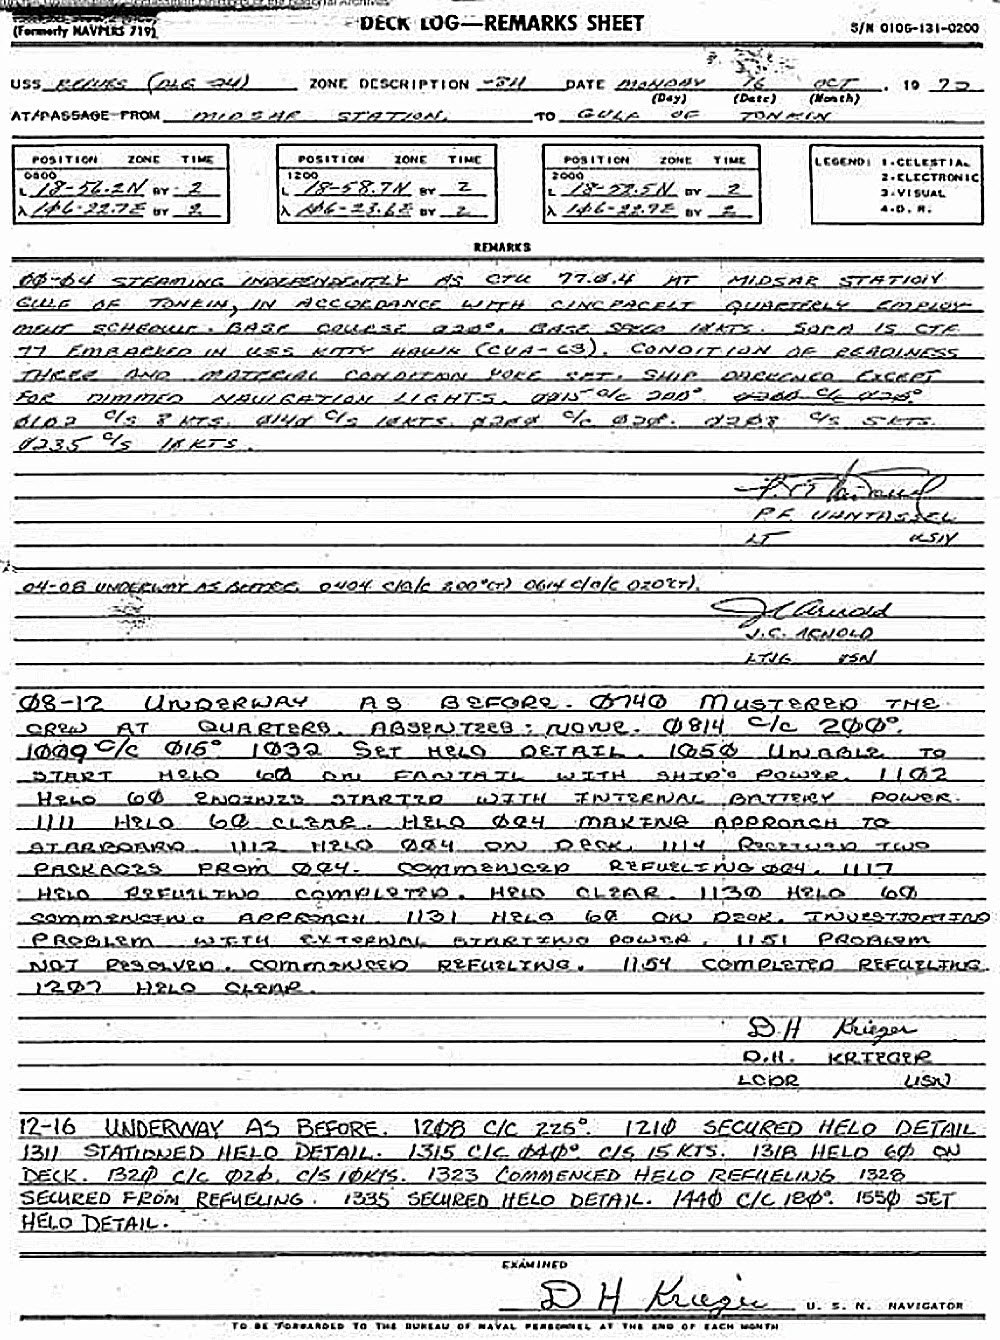 (Formerly NAVPERS 719)
DECK LOG—REMARKS SHEET
S/N 0106-131-0200
USS REEVES (DLG-24) ZONE DESCRIPTION -8H DATE MONDAY 16 OCT , 19 72
(Day) (Date) (Month)
AT/PASSAGE FROM MIDSAR STATION, TO GULF OF TONKIN
POSITION ZONE TIME
0800
L 18-56.2N BY 2
λ 106-22.7E BY 2
POSITION ZONE TIME
1200
L 18-58.7N BY 2
λ 106-23.6E BY 2
POSITION ZONE TIME
2000
L 18-52.5N BY 2
λ 106-22.9E BY 2
LEGEND: 1-CELESTIAL
2-ELECTRONIC
3-VISUAL
4-D. R.
REMARKS
00-04 STEAMING INDEPENDENTLY AS CTU 77.0.4 AT MIDSAR STATION
GULF OF TONKIN, IN ACCORDANCE WITH CINCPACFLT QUARTERLY EMPLOY-
MENT SCHEDULE. BASE COURSE 020°, BASE SPEED 10KTS. SOPA IS CTF
77 EMBARKED IN USS KITTY HAWK (CVA-63). CONDITION OF READINESS
THREE AND MATERIAL CONDITION YOKE SET. SHIP DARKENED EXCEPT
FOR DIMMED NAVIGATION LIGHTS. 0015 C/C 200°. 0200 C/C 020°
0102 C/S 8 KTS. 0140 C/S 10KTS. 0200 C/C 020. 0208 C/S 5KTS.
0235 C/S 10KTS.
P.F. VANTASSEL
LT USN
04-08 UNDERWAY AS BEFORE. 0404 C/A/C 200°(T) 0614 C/A/C 020°(T).
J C Arnold
J.C. ARNOLD
LTJG USN
08-12 UNDERWAY AS BEFORE. 0740 MUSTERED THE
CREW AT QUARTERS. ABSENTEES: NONE. 0814 C/C 200°.
1009 C/C 015° 1032 SET HELO DETAIL. 1050 UNABLE TO
START HELO 60 ON FANTAIL WITH SHIP'S POWER. 1102
HELO 60 ENGINES STARTED WITH INTERNAL BATTERY POWER.
1111 HELO 60 CLEAR. HELO 004 MAKING APPROACH TO
STARBOARD. 1112 HELO 004 ON DECK. 1114 RECEIVED TWO
PACKAGES FROM 004. COMMENCED REFUELING 004. 1117
HELO REFUELING COMPLETED. HELO CLEAR. 1130 HELO 60
COMMENCING APPROACH. 1131 HELO 60 ON DECK. INVESTIGATING
PROBLEM WITH EXTERNAL STARTING POWER. 1151 PROBLEM
NOT RESOLVED. COMMENCED REFUELING. 1154 COMPLETED REFUELING.
1207 HELO CLEAR.
D H Krieger
D.H. KRIEGER
LCDR USN
12-16 UNDERWAY AS BEFORE. 1208 C/C 225°. 1210 SECURED HELO DETAIL
1311 STATIONED HELO DETAIL. 1315 C/C 040° C/S 15 KTS. 1318 HELO 60 ON
DECK. 1320 C/C 020, C/S 10KTS. 1323 COMMENCED HELO REFUELING 1328
SECURED FROM REFUELING. 1335 SECURED HELO DETAIL. 1440 C/C 180°. 1550 SET
HELO DETAIL.
EXAMINED
D H Krieger U. S. N. NAVIGATOR
TO BE FORWARDED TO THE BUREAU OF NAVAL PERSONNEL AT THE END OF EACH MONTH